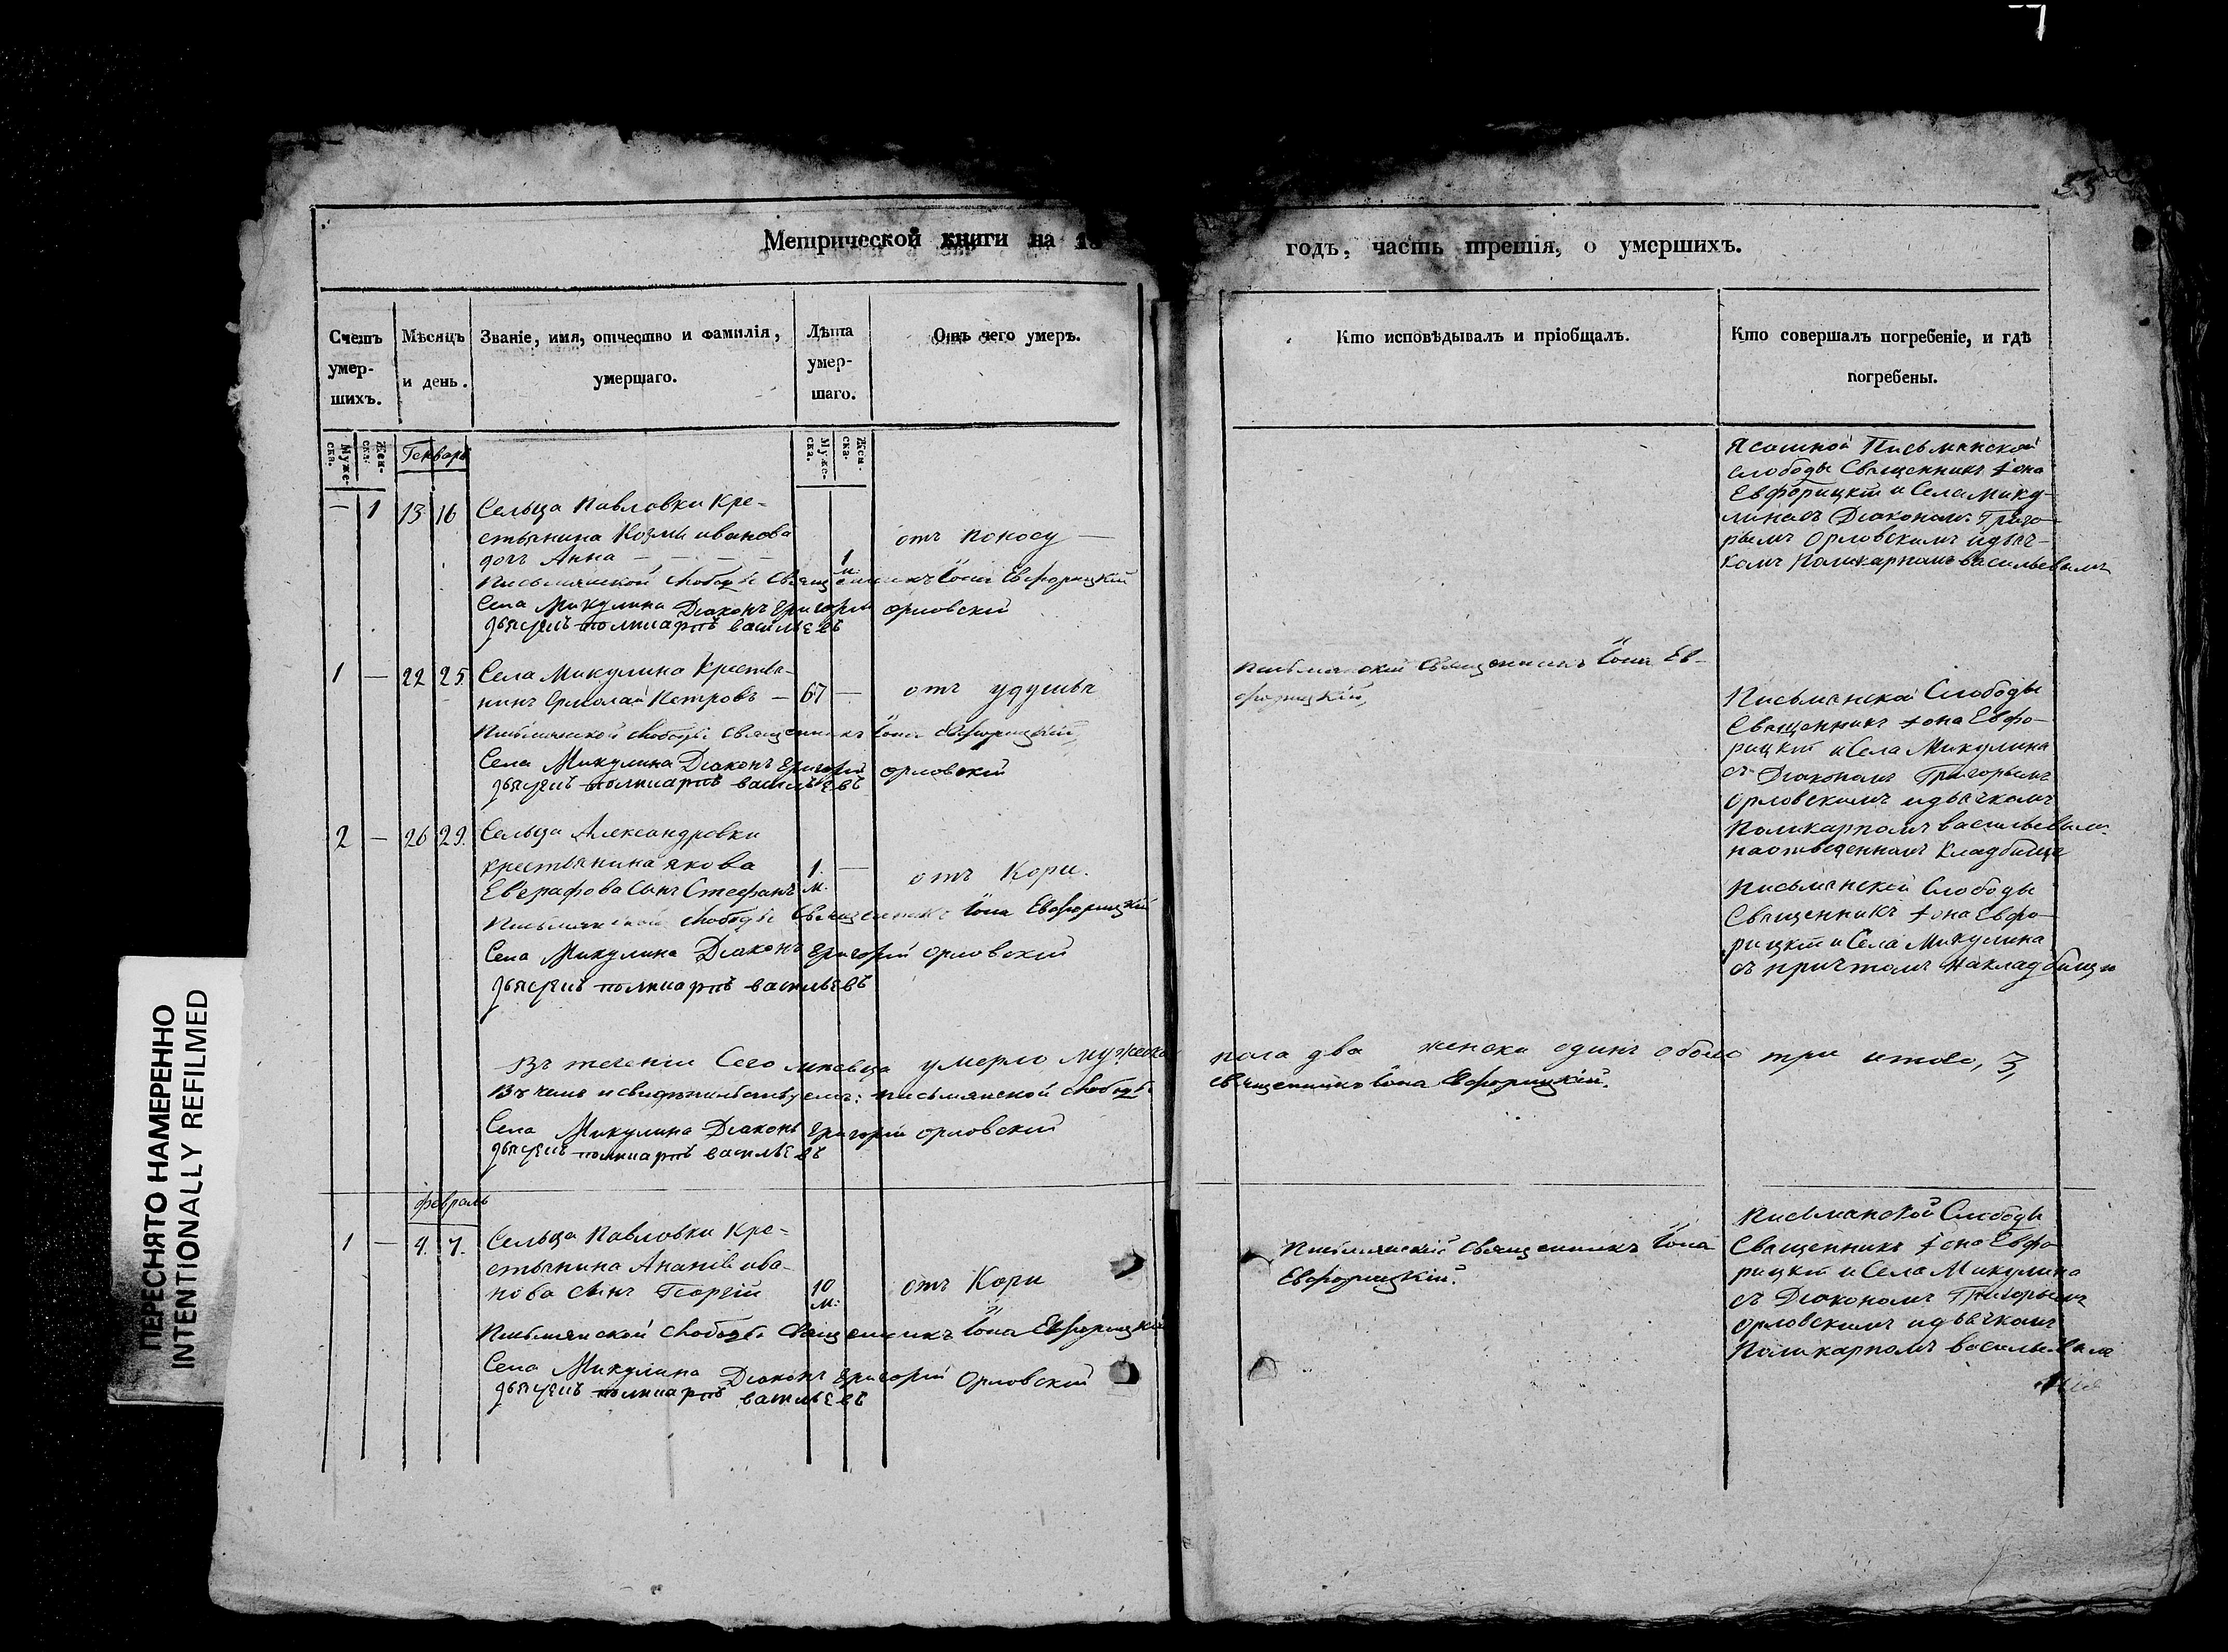 55
Метрической книги на 18
годъ, часть третія, о умершихъ.
Счетъ умер- шихъ.
Мѣсяцъ и день.
Званіе, имя, отчество и фамилія, умершаго.
Лѣта умер- шаго.
Отъ чего умеръ.
Кто исповѣдывалъ и пріобщалъ.
Кто совершалъ погребеніе, и гдѣ погребены.
Муже- ска.
Жен- ска.
Генварь
Муже- ска.
Жен- ска.
— 1 13 16 Сельца Павловки Кре-
стьянина Козмы иванова
дочь Анна — — — —
1 м.
отъ поносу —
Письмянской слободы Священникъ Іона Евфорицкій
Села Микулина Діаконъ Григорій орловскій
дьячекъ поликарпъ васильевъ
Письмянской
слободы Священникъ Іона
Евфорицкій и Села Мику-
лина съ Діакономъ Григо-
рьемъ Орловскимъ и дьяч-
комъ Поликарпомъ васильевымъ
1 — 22 25 Села Микулина Крестья-
нинъ Ермолай Петровъ — 67 —
отъ удушья
Письмянской слободы священникъ Іона Евфорицкій
Села Микулина Діаконъ Григорій орловскій
дьячекъ поликарпъ васильевъ
Письмянскій Священникъ Іона Ев-
форицкій
Письмянской Слободы
Священникъ Іона Евфо-
рицкій и Села Микулина
съ Діакономъ Григорьемъ
Орловскимъ и дьячкомъ
Поликарпомъ васильевымъ
на отведенномъ кладбище
2 — 26 29. Сельца Александровки
крестьянина якова
Евграфова сынъ Стефанъ
1. м. —
отъ Кори.
Письмянской слободы Священникъ Іона Евфорицкій
Села Микулина Діаконъ Григорій орловскій
дьячекъ поликарпъ васильевъ
Письмянской Слободы
Священникъ Іона Евфо-
рицкій и Села Микулина
съ причтомъ на кладбище
Въ теченіи Сего месяца умерло мужеска пола два женска одинъ обоего три итого, 3,
Въ чемъ и свидетельствуемъ: письмянской слободы священникъ Іона Евфорицкій.
Села Микулина Діаконъ Григорій орловскій
дьячекъ поликарпъ васильевъ
февраль
1 — 4. 7. Сельца Павловки Кре-
стьянина Ананія ива-
нова сынъ Георгій
10 м:
отъ Кори
Письмянской слободы Священникъ Іона Евфорицкій
Села Микулина Діаконъ Григорій Орловскій
дьячекъ поликарпъ васильевъ
Письмянскій священникъ Іона
Евфорицкій.
Письмянской Слободы
Священникъ Іона Евфо-
рицкій и Села Микулина
съ Діакономъ Григорьемъ
Орловскимъ и дьячкомъ
Поликарпомъ васильевымъ
ПЕРЕСНЯТО НАМЕРЕННО
INTENTIONALLY REFILMED